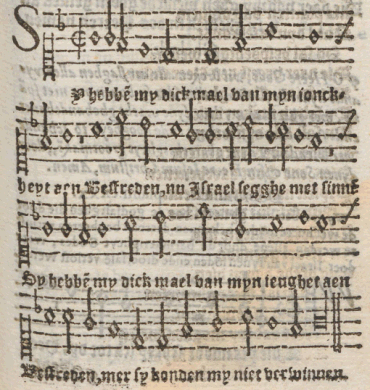 S
Y hebbē my dick mael van myn ionck-
heyt aen Bestreden, nu Israel segghe met sinne
Sy hebbē my dick mael van myn ieughet aen
Bestreden, mer sy konden my niet verwinnen.